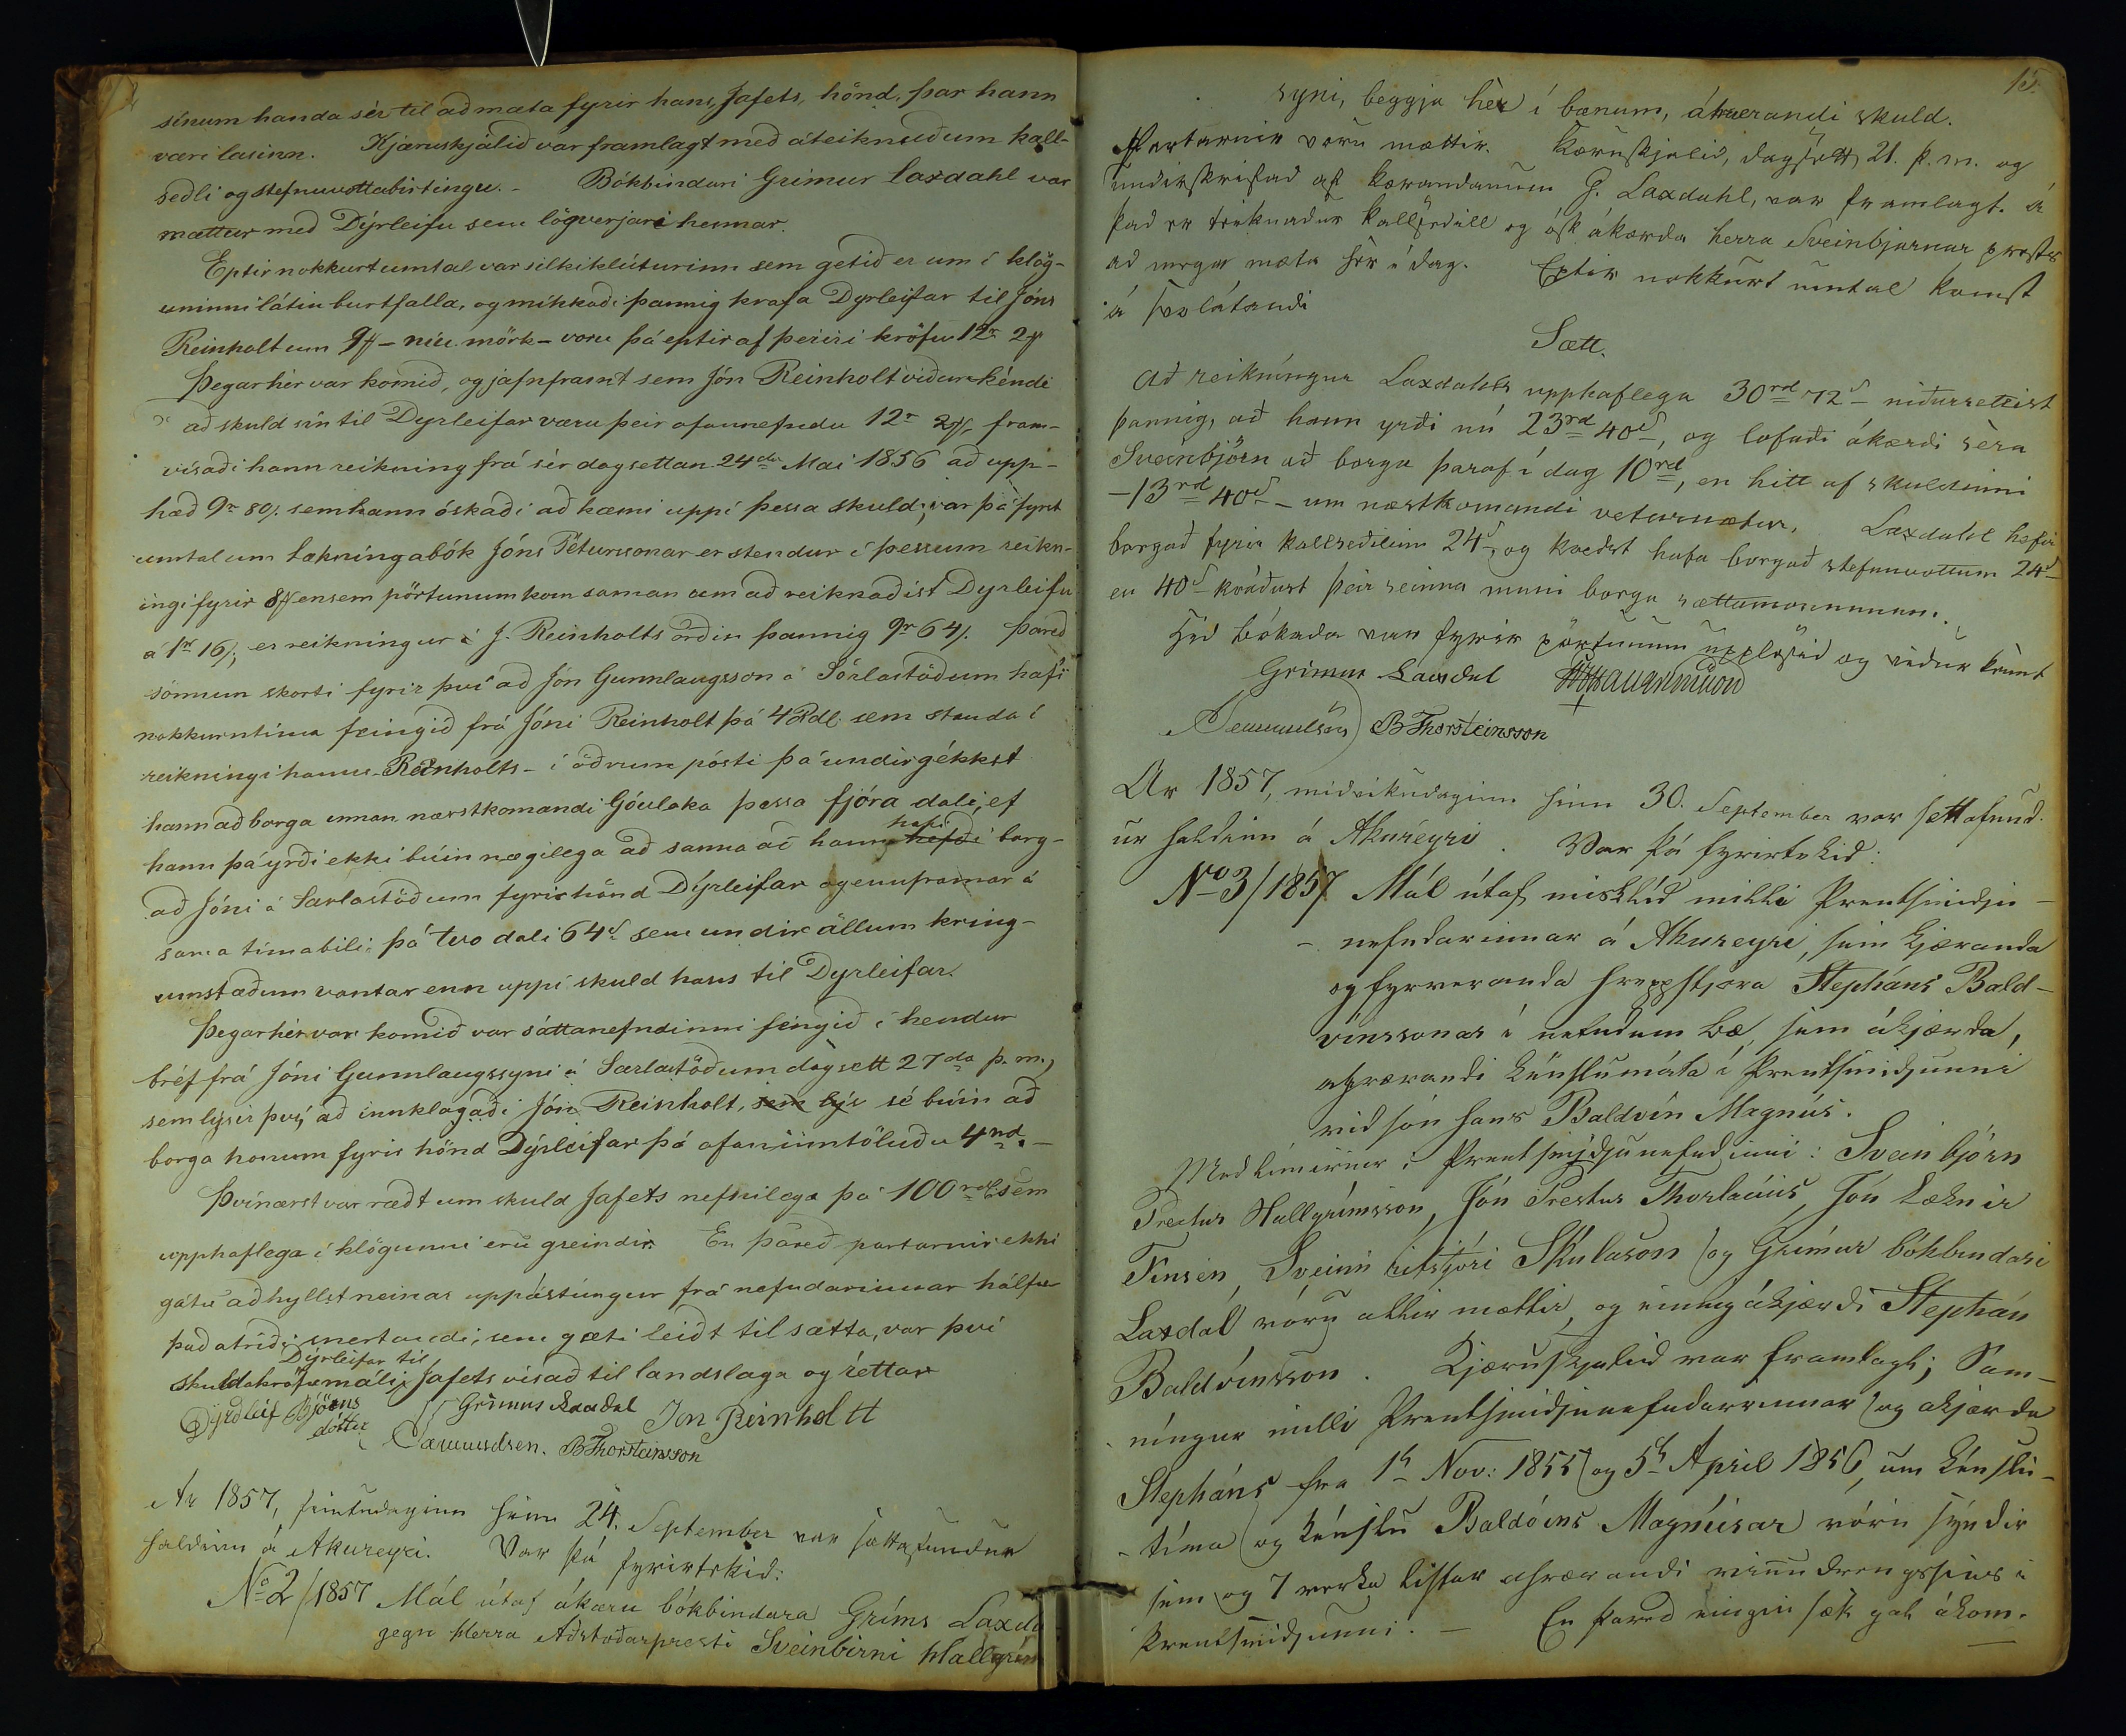 sínum handa sér til að mæta fyrir hans, Jafets, hönd, þar hann
væri lasinn. Kjæruskjalið var framlagt með áteiknuðum kall-
seðli og stefnuvottabirtingu. - Bókbindari Grímur Laxdahl var
mættur með Dýrleifu sem lögverjari hennar.
Eptir nokkurt umtal var silkiklúturinn sem getið er um í klög-
uninni látin burtfalla, og minkaði þannig krafa Dyrleifar til Jóns
Reinholt um 9 - níu mörk - voru þá eptir af þeirri kröfu 12r 2
Þegar hér var komið, og jafnframt sem Jón Reinholt viðurkéndi
að skuld sín til Dyrleifar væru þeir ofannefndu 12r 2 fram-
vísaði hann reikning frá sér dagsettan 24da Mai 1856 að upp-
hæð 9r 80 sem hann óskaði að kæmi uppí þessa skuld; var þá fyrst
umtal um lækningabók Jóns Péturssonar er stendur í þessum reikn-
ingi fyrir 8 en sem pörtunum kom saman um að reiknaðist Dyrleifu
á 1r 16; er reikningur J. Reinholts orðin þannig 9r 64. Þareð
sönnun skorti fyrir því að Jón Gunnlaugsson á Sörlastöðum hafi
nokkurntíma feingið frá Jóni Reinholt þá 4 Rdl. sem standa í
reikningi hanns - Reinholts - í öðrum pósti þá undirgékkst
hann að borga innan næstkomandi Góuloka þessa fjóra dali, ef
hann þá yrði ekki búin nægilega að sanna að hann hafi hefði borg-
að Jóni á Sarlastöðum fyrir hönd Dýrleifar og ennframar á
sama tímabili þá tvo dali 64s sem undir öllum kring-
umstæðum vantar enn uppí skuld hans til Dyrleifar.
Þegar hér var komið var sáttanefndinni fengið í hendur
bréf frá Jóni Gunnlaugssyni á Sarlastöðum dagsett 27da þ. m.,
sem lýsir því, að innklagaði Jón Reinholt, sem lýsi sé búin að
borga honum fyrir hönd Dýrleifar þá ofanumtöluðu 4rd. -
Þvínærst var rædt um skuld Jafets nefnilega þá 100 rdl sem
upphaflega í klögunni eru greindir. En þareð partarnir ekki
gátu aðhyllst neinar uppástúngur frá nefndarinnar hálfu
það atriði snertandi, sem gæti leiðt til sætta, var því
Dýrleifar til
skuldakröfumáli Jafets vísað til landslaga og réttar
Dyrðleif Björns Grimur Laxdal Jon Reinholtt
dóttir
BThorsteinsson
Ár 1857, fimtudaginn hinn 24. September var sættafundur
haldinn á Akureyri. Var þá fyrirtekið:
No 2/1857 Mál útaf ákæru bókbindara Gríms Laxda
gegn Herra Aðstoðarpresti Sveinbirni Hallgrím
15.
syni, beggja hèr í bænum, áhrærandi skuld.
Partarnir vóru mættir. Kæruskjalið, dagsett 21. þ. m. og
undirskrifað af kærandanum G. Laxdahl, var framlagt. á
það er teiknaður kallseðill og ósk ákærða herra Sveinbjarnar prests
að mega mæta hér í dag. Eptir nokkurt umtal komst
á svolátandi
Sætt.
Að reikníngur Laxdahls upphaflega 30rd 72s niðursettist
þannig, að hann yrði nú 23rd 40s, og lofaði ákærði sèra
Sveinbjörn að borga þaraf í dag 10rd, en hitt af skuldinni
- 13rd 40s - um næstkomandi veturnætur. Laxdahl hefir
borgað fyrir kallseðilinn 24s, og kvedst hafa borgað stefnuvottum 24s
en 40s kváðust þeir seinna muni borga sættamönnunum.
Hið bókaða var fyrir pörtunum upplesið og viður kènnt
Grimur Laxdal
BThorsteinsson
Ár 1857, miðvikudaginn hinn 30. September var sættafund-
ur haldinn á Akureyri. Var þá fyrirtekið:
No 3/1857 Mál útaf misklíð milli Prentsmiðju-
- nefndarinnar á Akureyri, sem kjæranda
og fyrveranda hreppstjora Stepháns Bald-
vinssonar í nefndum bæ, sem ákjærda,
ahrærandi kénslumáta í Prentsmiðjunni
við son hans Baldvin Magnús.
Medlimirnir i Prentsmiðjunefndinni: Sveinbjörn
Prestur Hallgrímsson, Jón Prestur Thorlacíus, Jón Læknir
Finsen, Sveinn ritstjóri Skúlason og Grímur bókbindari
Laxdal vóru allir mættir, og einnig ákjærdi Stephán
Baldvinsson. Kjæruskjalid var framlagt; Sam-
níngur milli Prentsmiðjunefndarinnar og akjærda
Stepháns fra 1h Nov: 1855 og 5h April 1856, um kénslu-
- tima og kénslu Baldvins Magnúsar vóru syndir
sem og 7 verka listar ahrærandi vinnu drengssins i
Prentsmiðjunni. - En þared eingin sætt gat ákom-